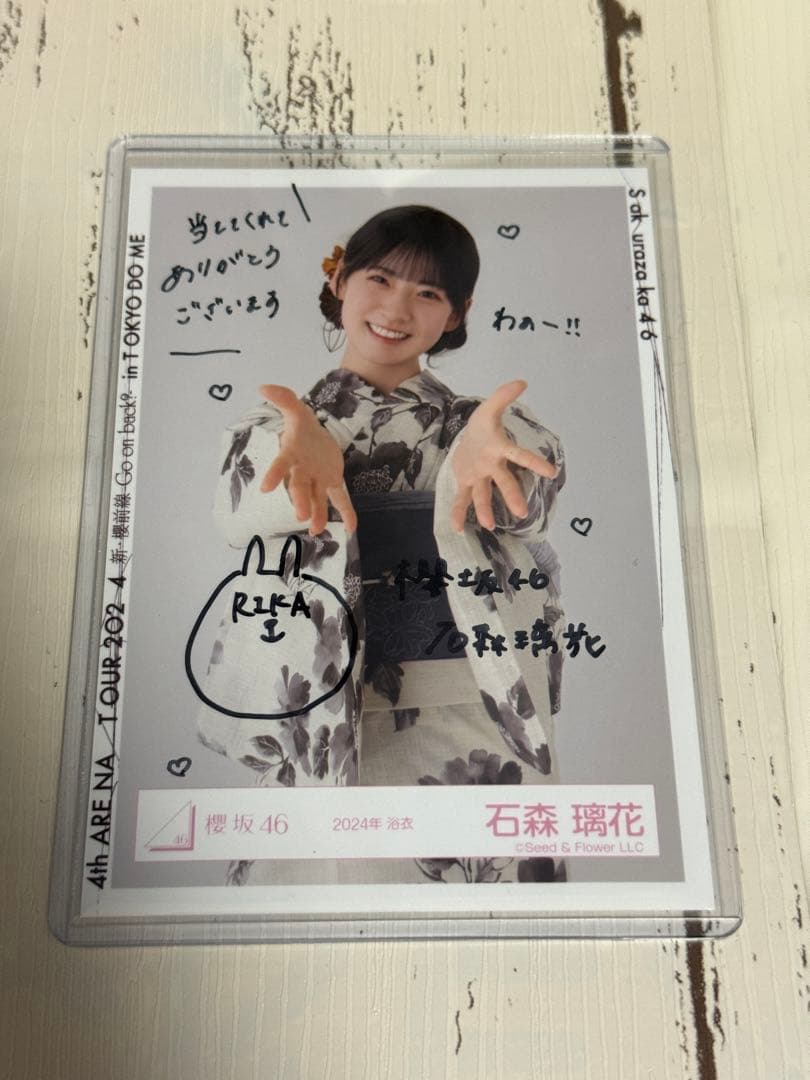 当ててくれて
ありがとう
ございます
わぁー!!
RIKA
櫻坂46
石森璃花
4th ARENA TOUR 2024 新・櫻前線 -Go on back?- in TOKYO DOME
Sakurazaka46
46
櫻坂46
2024年 浴衣
石森 璃花
©Seed & Flower LLC